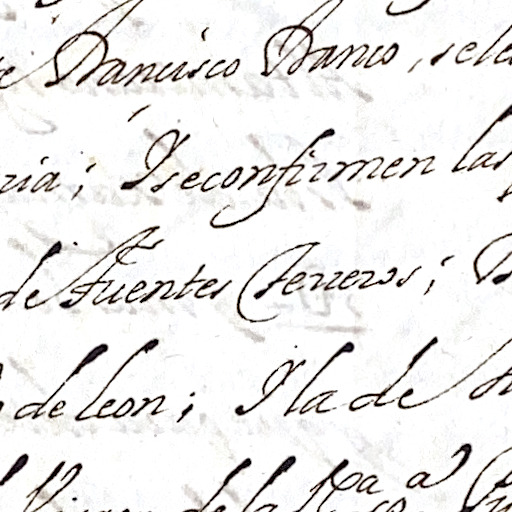 Francisco Franco, se le
ria; Y se confirmen las
de Fuentes Terreros;
de leon; Y la de
Virgen de la